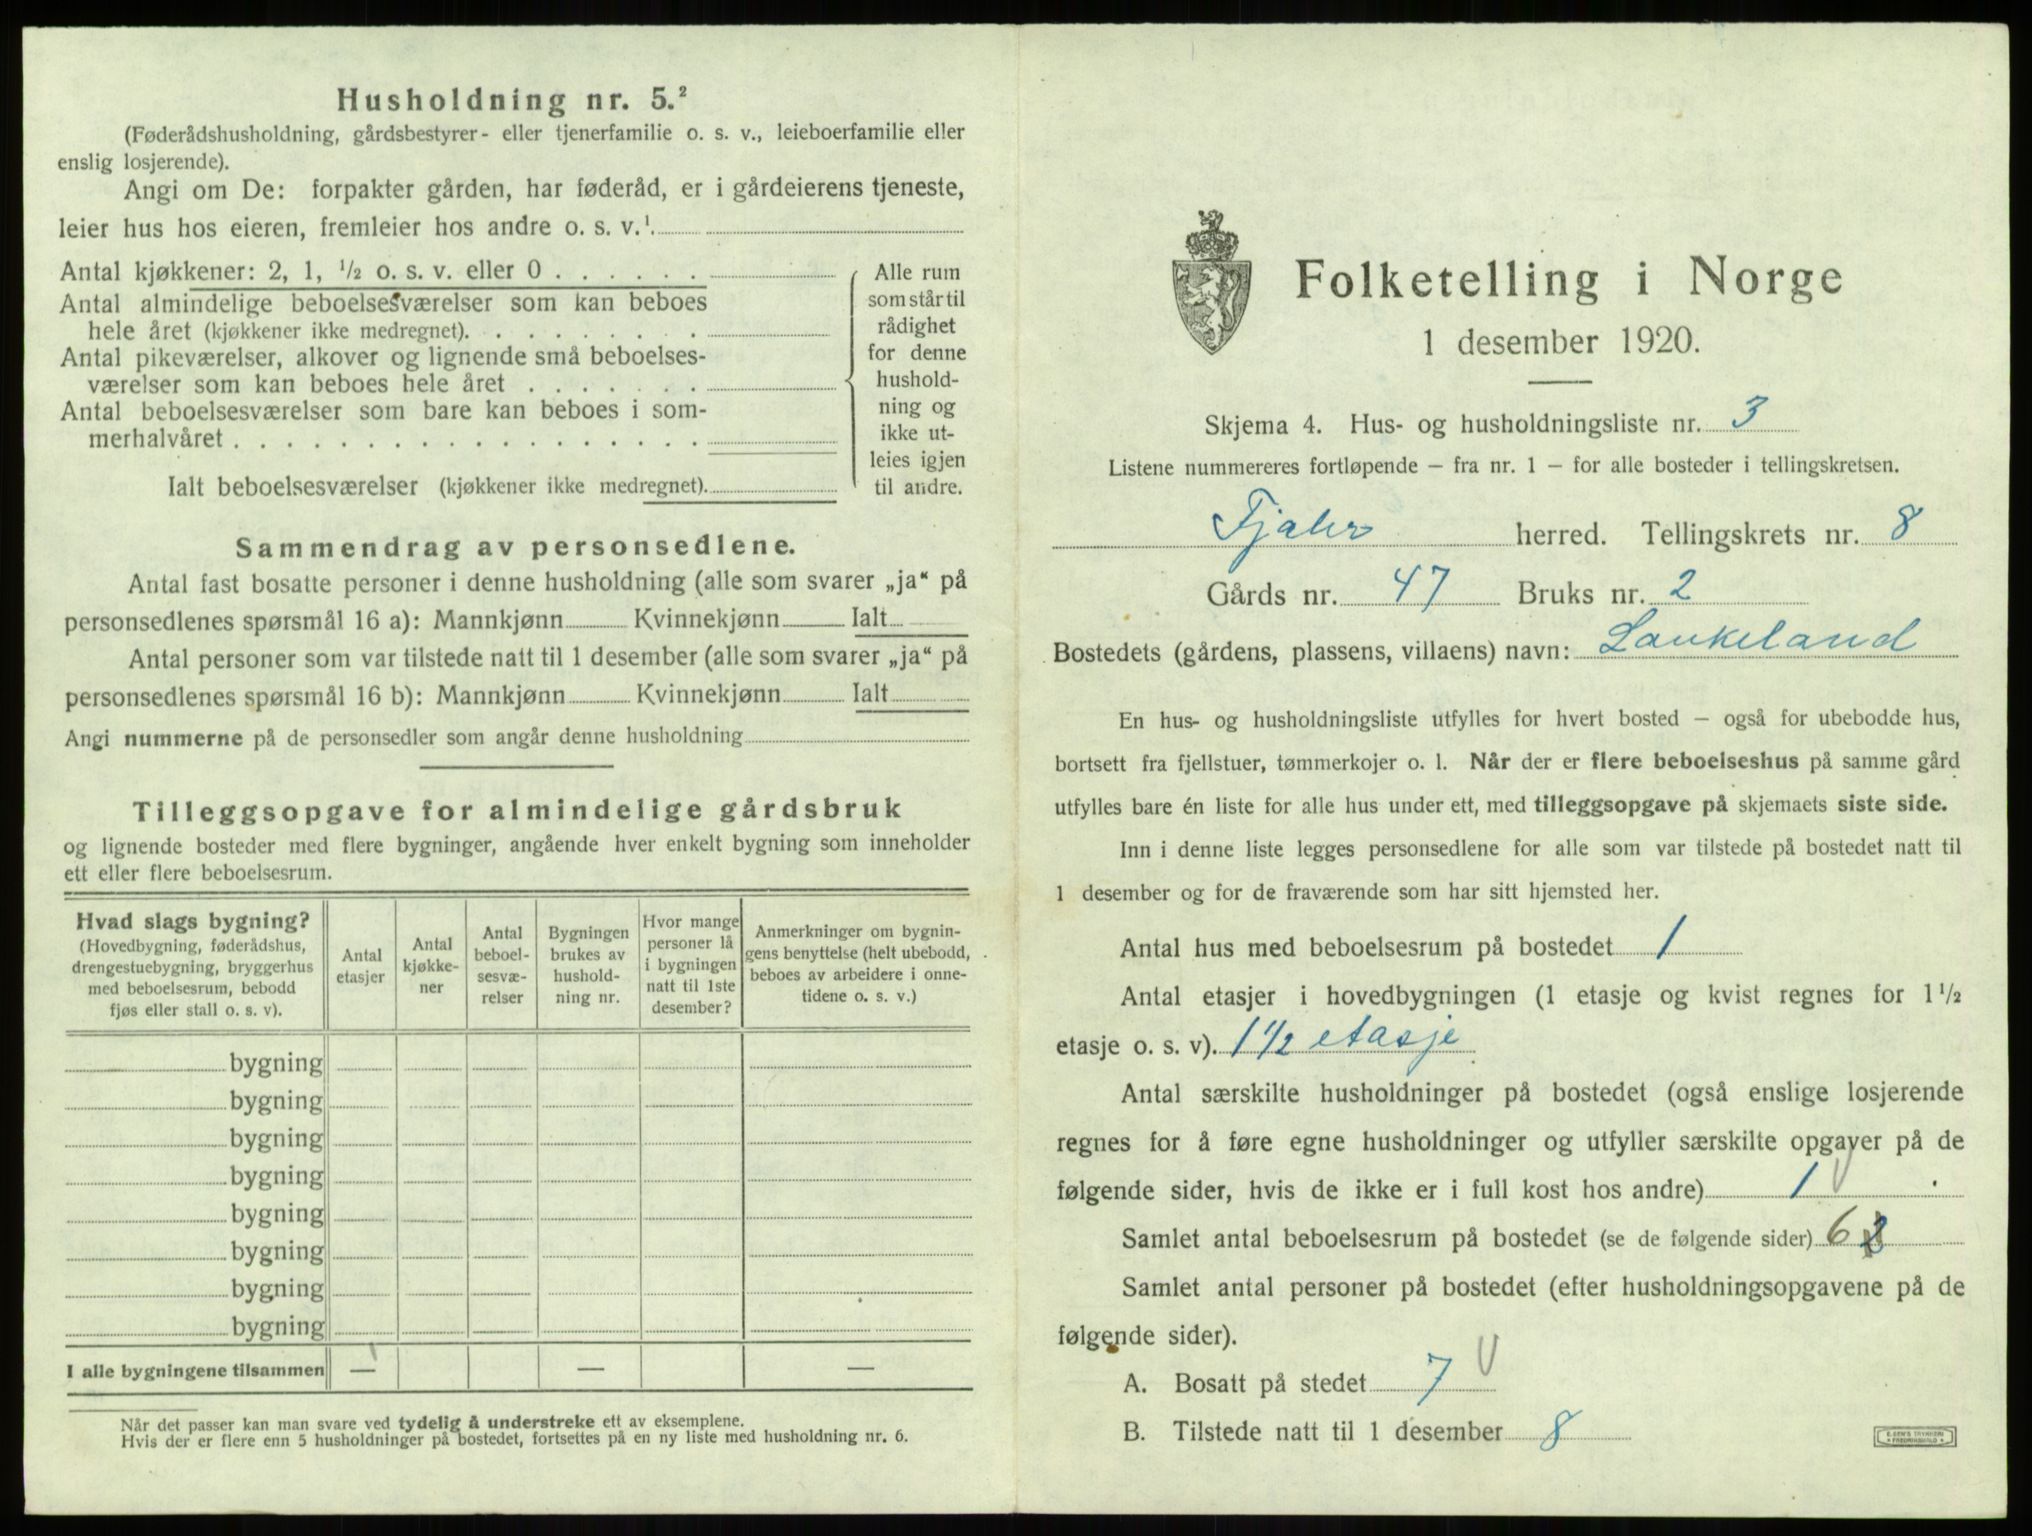 Husholdning nr. 5.²
(Føderådshusholdning, gårdsbestyrer- eller tjenerfamilie o. s. v., leieboerfamilie eller
enslig losjerende).
Angi om De: forpakter gården, har føderåd, er i gårdeierens tjeneste,
leier hus hos eieren, fremleier hos andre o. s. v.¹
Antal kjøkkener: 2, 1, ½ o. s. v. eller 0 . . . . . .
Antal almindelige beboelsesværelser som kan beboes
hele året (kjøkkener ikke medregnet). . . . . . . . .
Antal pikeværelser, alkover og lignende små beboelses-
værelser som kan beboes hele året . . . . . . .
Antal beboelsesværelser som bare kan beboes i som-
merhalvåret . . . . . . . . . . . . . . . . . .
Ialt beboelsesværelser (kjøkkener ikke medregnet).
Alle rum
som står til
rådighet
for denne
hushold-
ning og
ikke ut-
leies igjen
til andre.
Sammendrag av personsedlene.
Antal fast bosatte personer i denne husholdning (alle som svarer „ja“ på
personsedlenes spørsmål 16 a): Mannkjønn Kvinnekjønn Ialt
Antal personer som var tilstede natt til 1 desember (alle som svarer „ja“ på
personsedlenes spørsmål 16 b): Mannkjønn Kvinnekjønn Ialt
Angi nummerne på de personsedler som angår denne husholdning
Tilleggsopgave for almindelige gårdsbruk
og lignende bosteder med flere bygninger, angående hver enkelt bygning som inneholder
ett eller flere beboelsesrum.
Hvad slags bygning?
(Hovedbygning, føderådshus,
drengestuebygning, bryggerhus
med beboelsesrum, bebodd
fjøs eller stall o. s. v).
Antal
etasjer
Antal
kjøkke-
ner
Antal
beboel-
sesvæ-
relser
Bygningen
brukes av
hushold-
ning nr.
Hvor mange
personer lå
i bygningen
natt til 1ste
desember?
Anmerkninger om bygnin-
gens benyttelse (helt ubebodd,
beboes av arbeidere i onne-
tidene o. s. v.)
bygning
bygning
bygning
bygning
bygning
bygning
bygning
bygning
I alle bygningene tilsammen — — —
Når det passer kan man svare ved tydelig å understreke ett av eksemplene.
Hvis der er flere enn 5 husholdninger på bostedet, fortsettes på en ny liste med husholdning nr. 6.
Folketelling i Norge
1 desember 1920.
Skjema 4. Hus- og husholdningsliste nr. 3
Listene nummereres fortløpende – fra nr. 1 – for alle bosteder i tellingskretsen.
Fjaler herred. Tellingskrets nr. 8
Gårds nr. 47 Bruks nr. 2
Bostedets (gårdens, plassens, villaens) navn: Laukeland
En hus- og husholdningsliste utfylles for hvert bosted – også for ubebodde hus,
bortsett fra fjellstuer, tømmerkojer o. l. Når der er flere beboelseshus på samme gård
utfylles bare én liste for alle hus under ett, med tilleggsopgave på skjemaets siste side.
Inn i denne liste legges personsedlene for alle som var tilstede på bostedet natt til
1 desember og for de fraværende som har sitt hjemsted her.
Antal hus med beboelsesrum på bostedet 1
Antal etasjer i hovedbygningen (1 etasje og kvist regnes for 1½
etasje o. s. v). 1 1/2 etasje
Antal særskilte husholdninger på bostedet (også enslige losjerende
regnes for å føre egne husholdninger og utfyller særskilte opgaver på de
følgende sider, hvis de ikke er i full kost hos andre) 1 V
Samlet antal beboelsesrum på bostedet (se de følgende sider) 6
Samlet antal personer på bostedet (efter husholdningsopgavene på de
følgende sider).
A. Bosatt på stedet 7 V
B. Tilstede natt til 1 desember 8